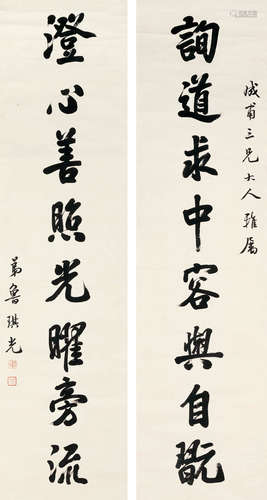 詢道求中容與自翫
成甫三兄大人雅屬
澄心善照光曜旁流
弟魯琪光